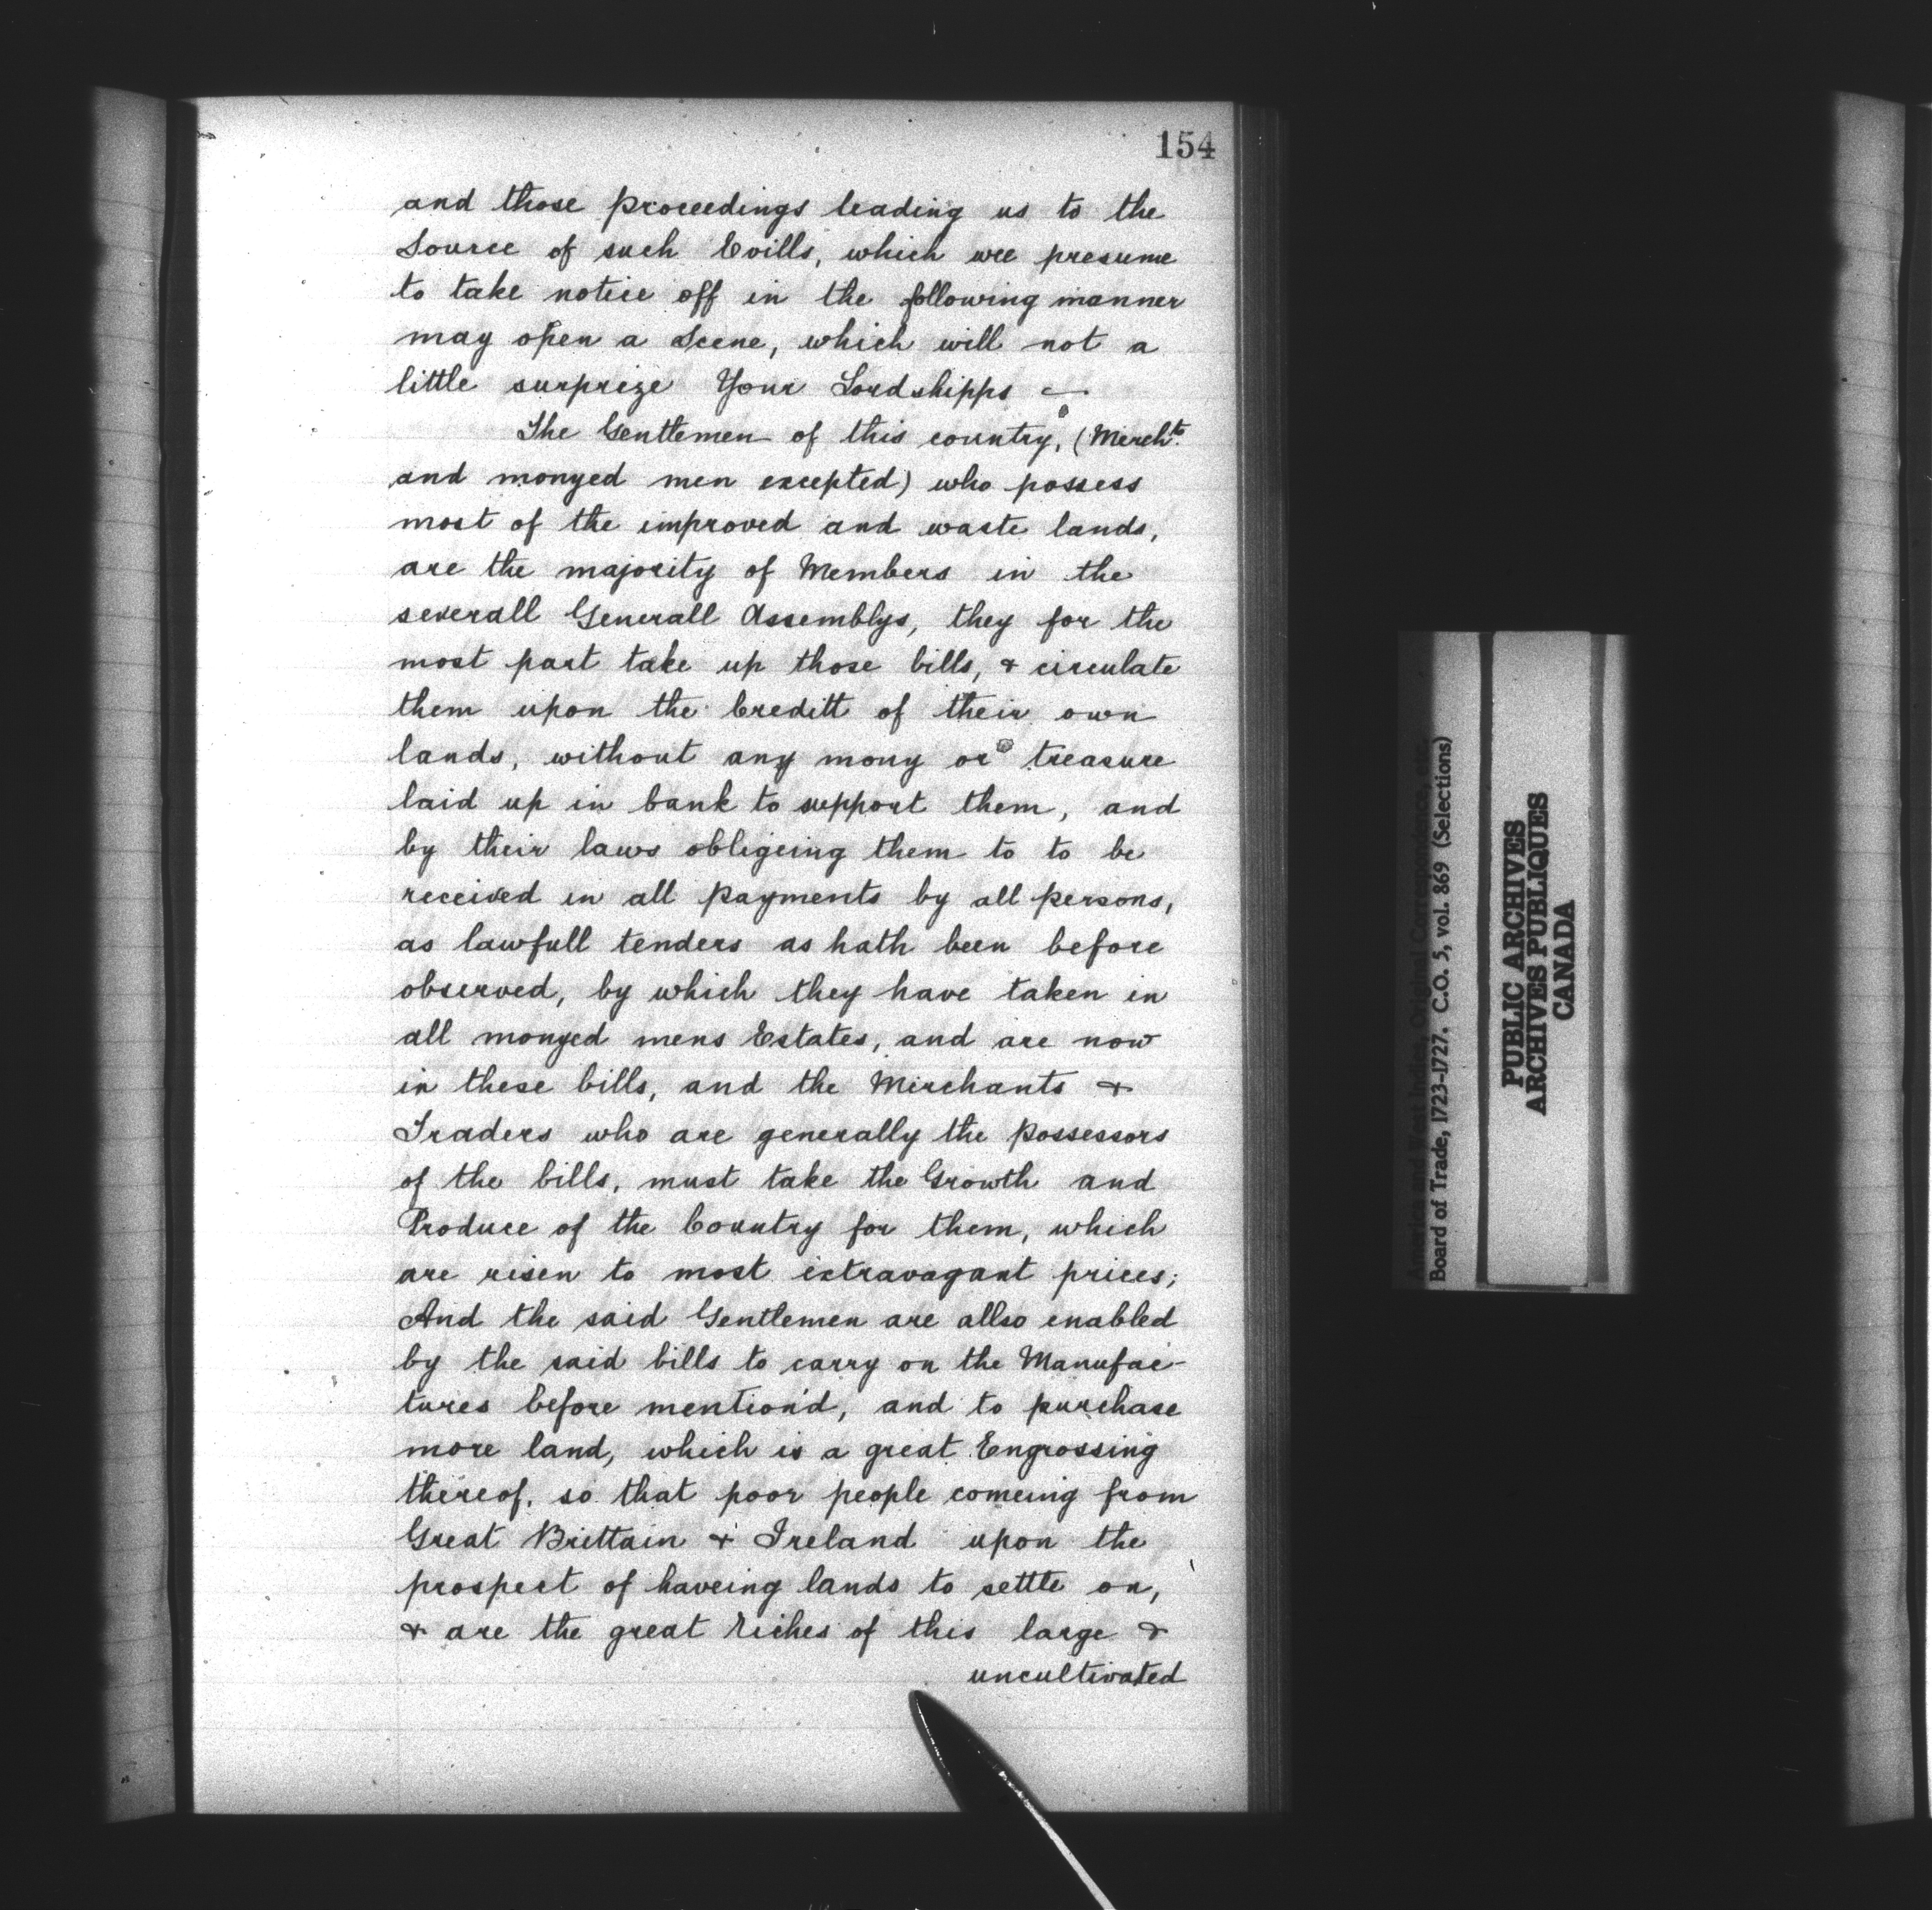 154
and those proceedings leading us to the
Source of such Evills, which wee presume
to take notice off in the following manner
may open a Scene, which will not a
little surprize Your Lordshipps —
The Gentlemen of this country, (Mercht.
and monyed men excepted) who possess
most of the improved and waste lands,
are the majority of Members in the
severall Generall Assemblys, they for the
most part take up those bills, & circulate
them upon the Creditt of their own
lands, without any mony or treasure
laid up in bank to support them, and
by their laws obligeing them to to be
received in all payments by all persons,
as lawfull tenders as hath been before
observed, by which they have taken in
all monyed mens Estates, and are now
in these bills, and the Merchants &
Traders who are generally the possessors
of the bills, must take the Growth and
Produce of the Country for them, which
are risen to most extravagant prices;
And the said Gentlemen are allso enabled
by the said bills to carry on the Manufac-
tures before mention'd, and to purchase
more land, which is a great Engrossing
thereof, so that poor people comeing from
Great Brittain & Ireland upon the
prospect of haveing lands to settle on,
& are the great riches of this large &
uncultivated
America and West Indies, Original Correspondence, etc.
Board of Trade, 1723-1727. C.O. 5, vol. 869 (Selections)
PUBLIC ARCHIVES
ARCHIVES PUBLIQUES
CANADA